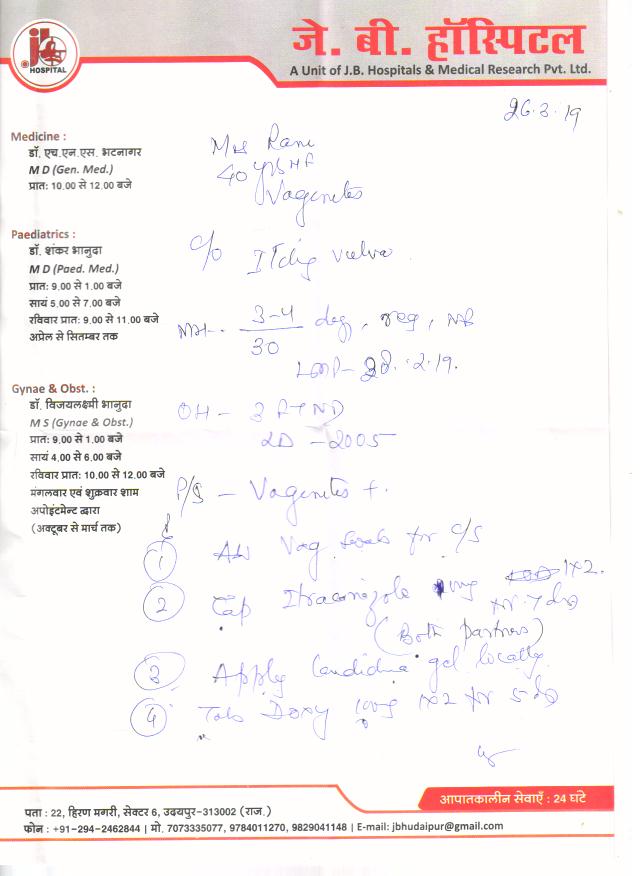 jb
HOSPITAL
जे. बी. हॉस्पिटल
A Unit of J.B. Hospitals & Medical Research Pvt. Ltd.
26.3.19
Medicine :
डॉ. एच.एन.एस. भटनागर
M D (Gen. Med.)
प्रात: 10.00 से 12.00 बजे
Paediatrics :
डॉ. शंकर भानुदा
M D (Paed. Med.)
प्रात: 9.00 से 1.00 बजे
सायं 5.00 से 7.00 बजे
रविवार प्रात: 9.00 से 11.00 बजे
अप्रेल से सितम्बर तक
Gynae & Obst. :
डॉ. विजयलक्ष्मी भानुदा
M S (Gynae & Obst.)
प्रात: 9.00 से 1.00 बजे
सायं 4.00 से 6.00 बजे
रविवार प्रात: 10.00 से 12.00 बजे
मंगलवार एवं शुक्रवार शाम
अपोइंटमेन्ट द्वारा
(अक्टूबर से मार्च तक)
Mrs Rani
40 yrs
Vagenetes
c/o Itching vulva
MH - 3-4/30 reg,
LMP- .2.19.
OH - 3 FTND
LD - 2005
P/S - Vagenetes +.
1 Adv Vag for C/S
2 Cap Itraconizole 1x2.
for 7 d
(Both partners)
3 Apply Candidine gel locally
4 Tab Doxy 100mg 1x2 for 5 d
आपातकालीन सेवाएँ : 24 घंटे
पता : 22, हिरण मगरी, सेक्टर 6, उदयपुर-313002 (राज.)
फोन : +91-294-2462844 | मो. 7073335077, 9784011270, 9829041148 | E-mail: jbhudaipur@gmail.com